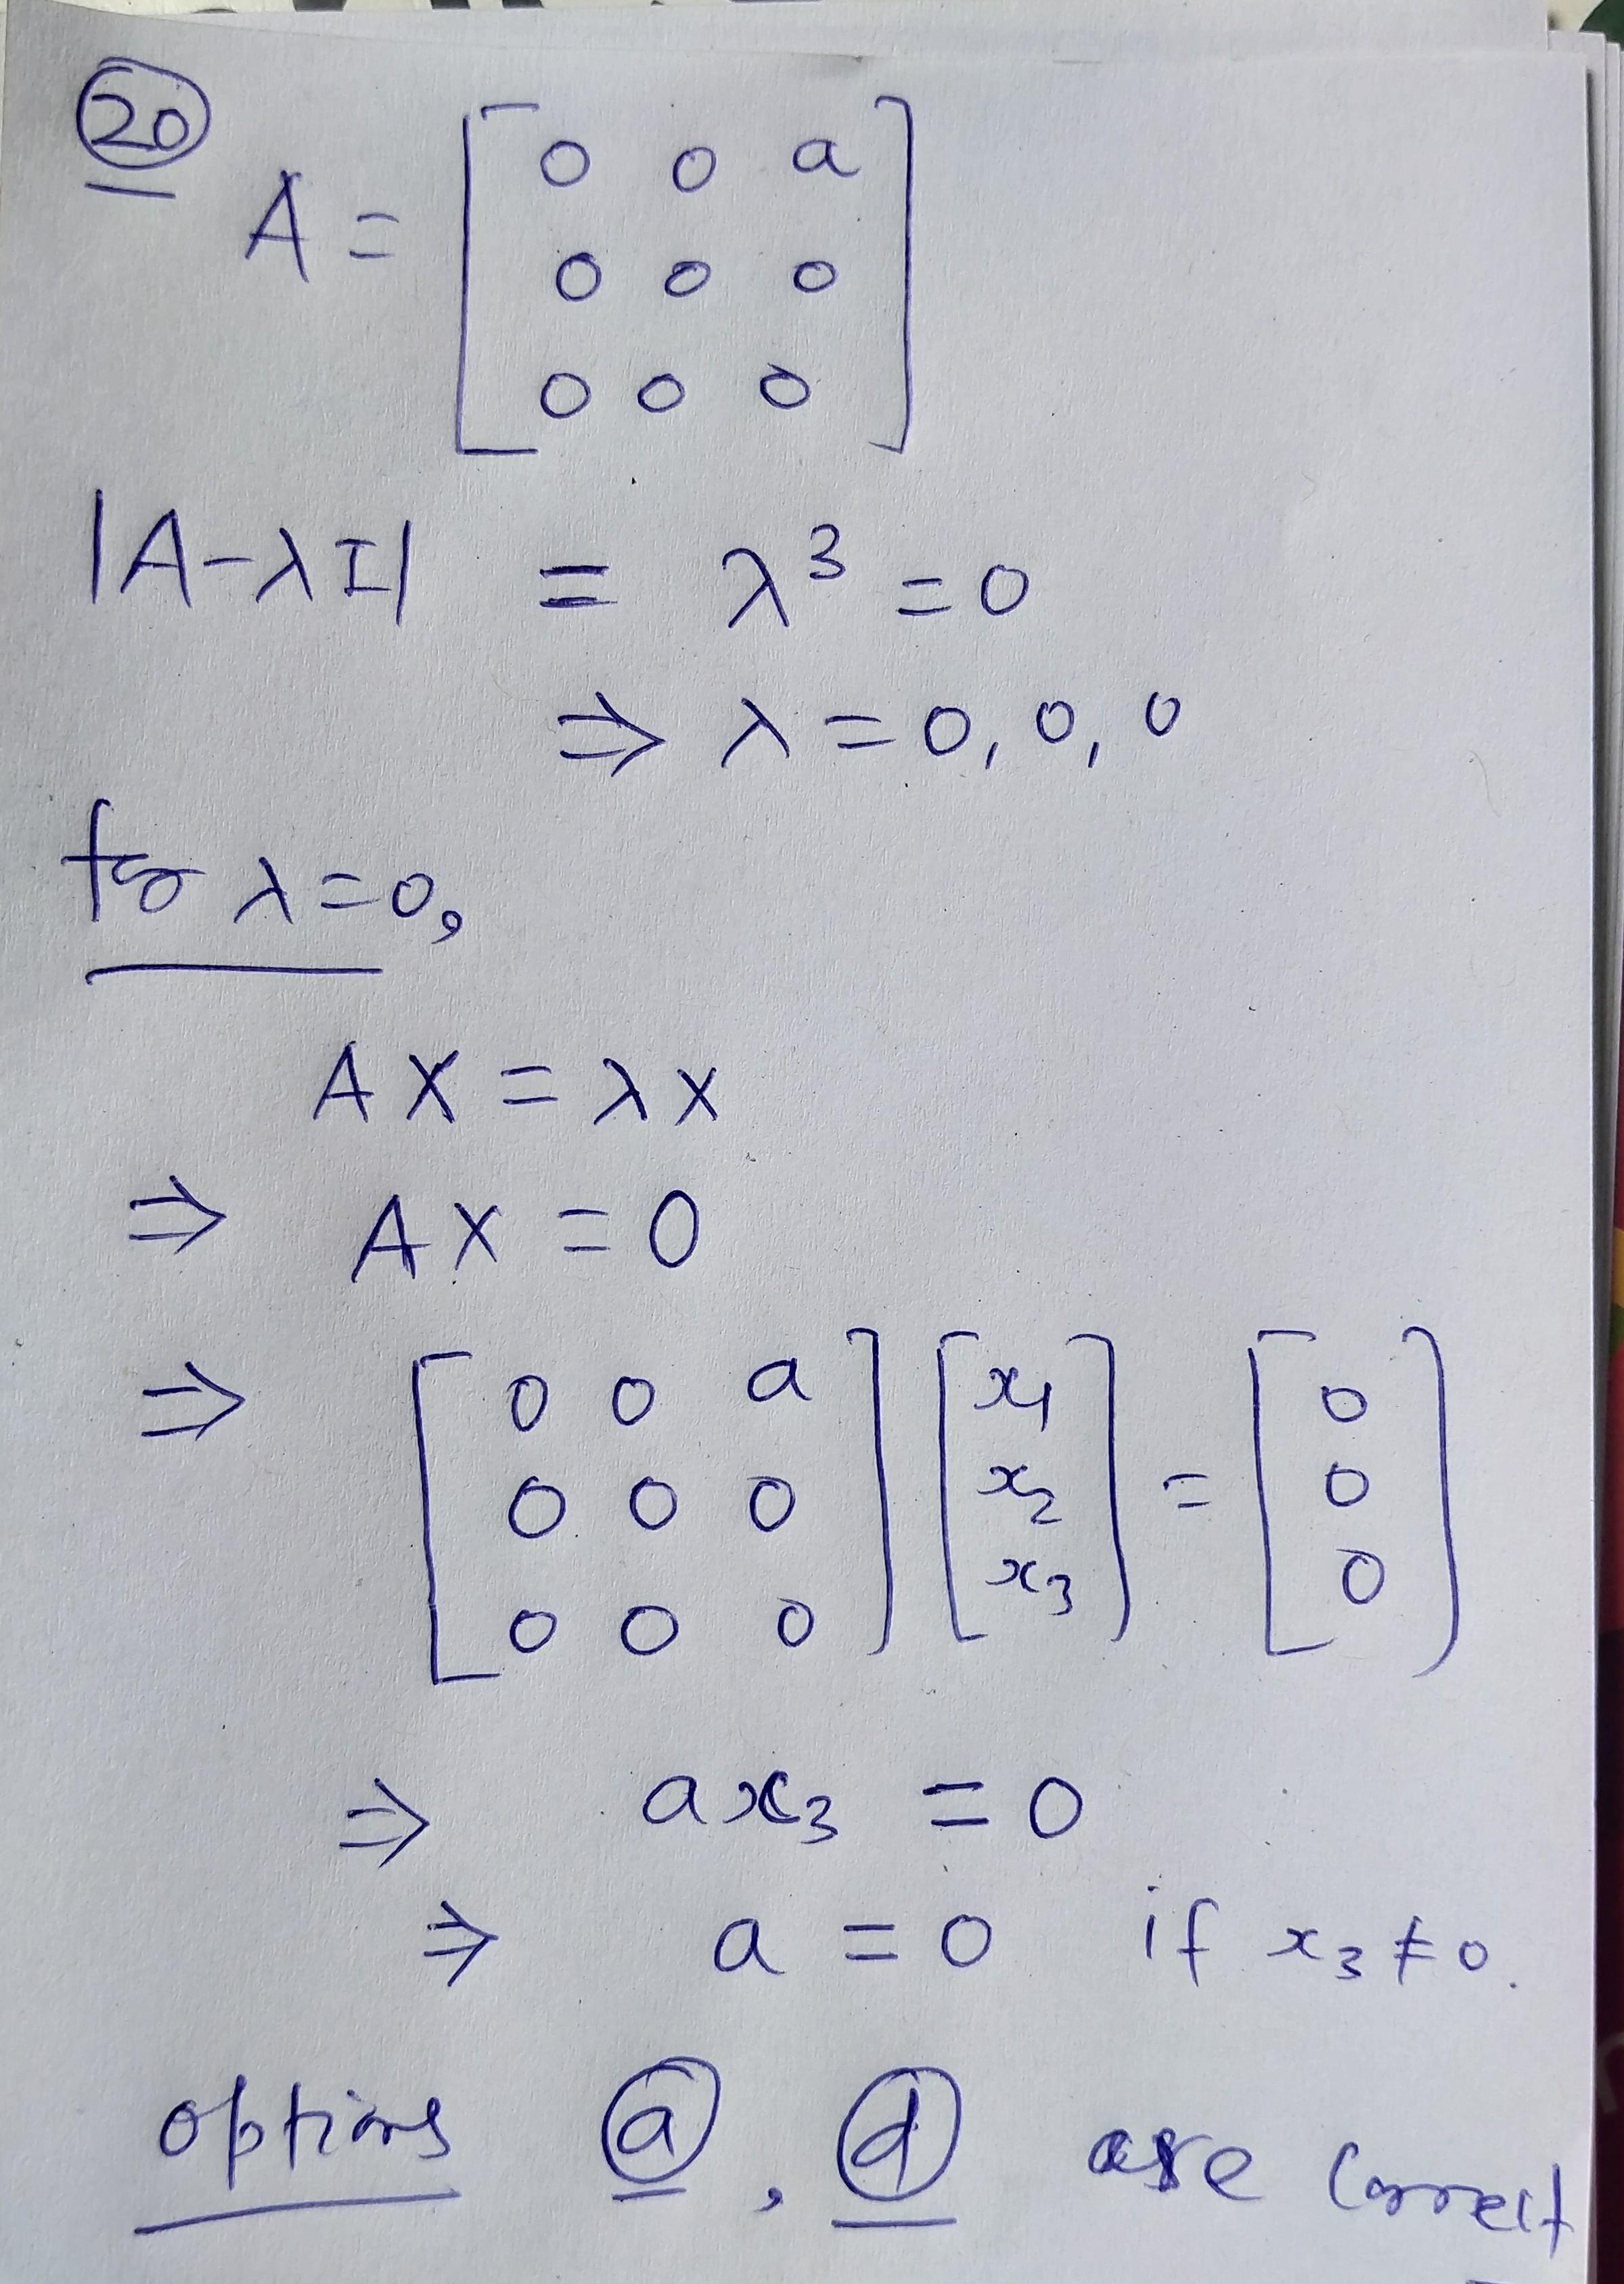 20
A = [ 0 0 a
0 0 0
0 0 0 ]
|A-λI| = λ³ = 0
⇒ λ = 0, 0, 0
for λ=0,
AX = λX
⇒ AX = 0
⇒ [ 0 0 a ] [ x₁ ] = [ 0 ]
[ 0 0 0 ] [ x₂ ] [ 0 ]
[ 0 0 0 ] [ x₃ ] [ 0 ]
⇒ ax₃ = 0
⇒ a = 0 if x₃ ≠ 0.
options a, d are correct